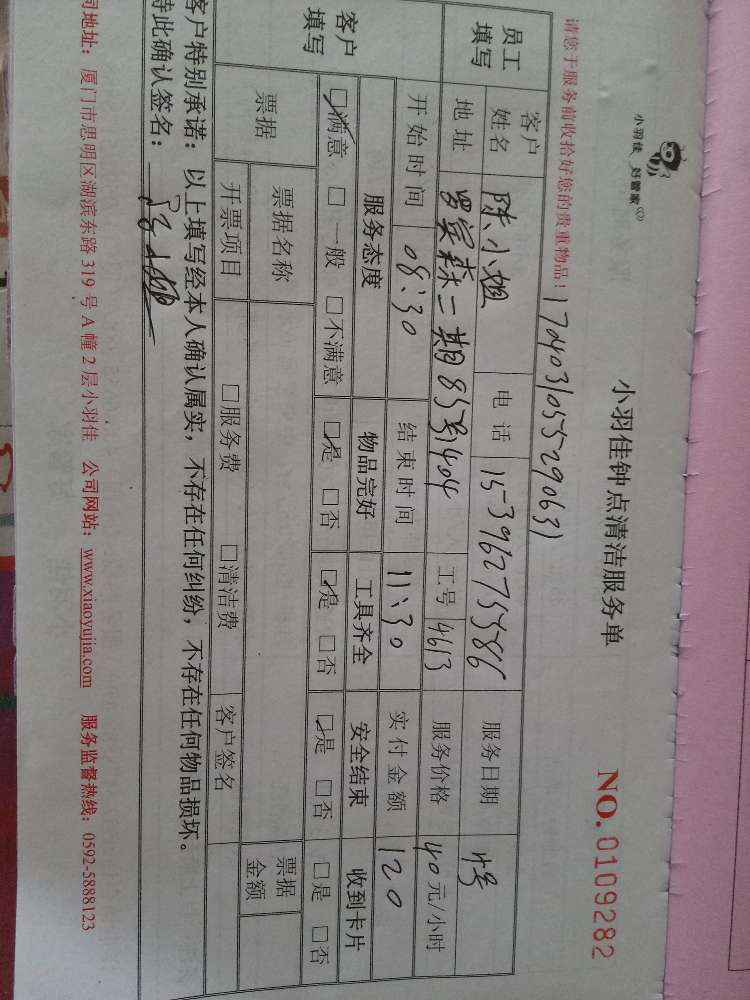 小羽佳 好管家
小羽佳钟点清洁服务单
NO. 0109282
请您于服务前收拾好您的贵重物品！
1704031055290631
员工填写
客户姓名 陈小姐 电话 15396275586 服务日期 4号
地址 罗宾森二期85号1404 工号 4613 服务价格 40元/小时
开始时间 08:30 结束时间 11:30 实付金额 120
客户填写
服务态度 物品完好 工具齐全 安全结束 收到卡片
☑满意 □一般 □不满意 ☑是 □否 ☑是 □否 ☑是 □否 □是 □否
票据 票据名称 票据金额
开票项目 □服务费 □清洁费 客户签名
客户特别承诺：以上填写经本人确认属实，不存在任何纠纷，不存在任何物品损坏。
特此确认签名：
司地址：厦门市思明区湖滨东路319号A幢2层小羽佳 公司网站：www.xiaoyujia.com 服务监督热线：0592-5888123